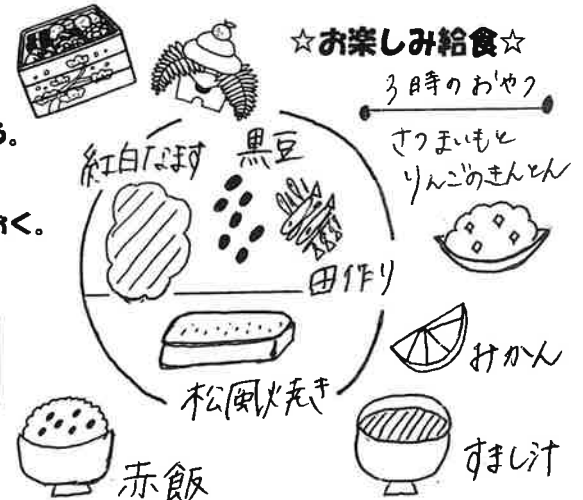 ☆お楽しみ給食☆
3時のおやつ
さつまいもと
りんごのきんとん
う。
おく。
紅白なます
黒豆
田作り
松風焼き
みかん
赤飯
すまし汁